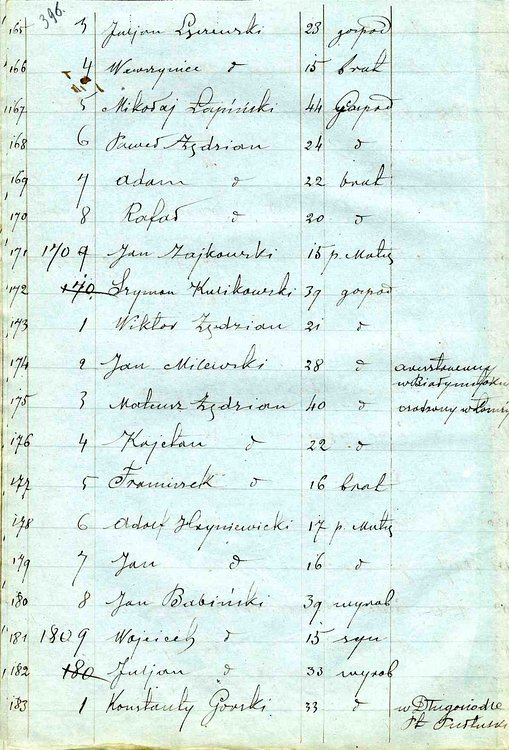 396.
165 3 Juljan 23 gospod
166 4 Wawrzyniec d 15 brat
167 5 Mikołaj Łapiński 44 Gospod
168 6 Paweł Zędzian 24 d
169 7 Adam d 22 brat
170 8 Rafał d 20 d
171 170 9 Jan Zajkowski 15 p. Matı
172 170. Szymon Kulikowski 39 gospod
173 1 Wiktor Zędzian 21 d
174 2 Jan Milewski 28 d aresztowany
w Białymstoku
175 3 Mateusz Zędzian 40 d osadzony w Łomży
176 4 Kajetan d 22 d
177 5 Franciszek d 16 brat
178 6 Adolf Hryniewicki 17 p. Matı
179 7 Jan d 16 d
180 8 Jan Babiński 39 wyrob
181 180 9 Wojciech d 15 syn
182 180 Juljan d 33 wyrob
183 1 Konstanty Gorski 33 d w Długosiodle
Pt Pułtuski